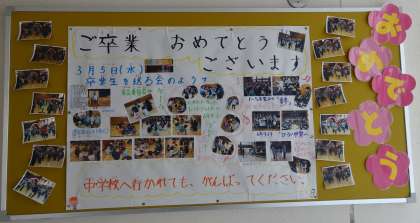 ご卒業 おめでとう
ございます
3月5日(水)
卒業生を送る会のようす
中学校へ行かれても、がんばってください。
おめでとう